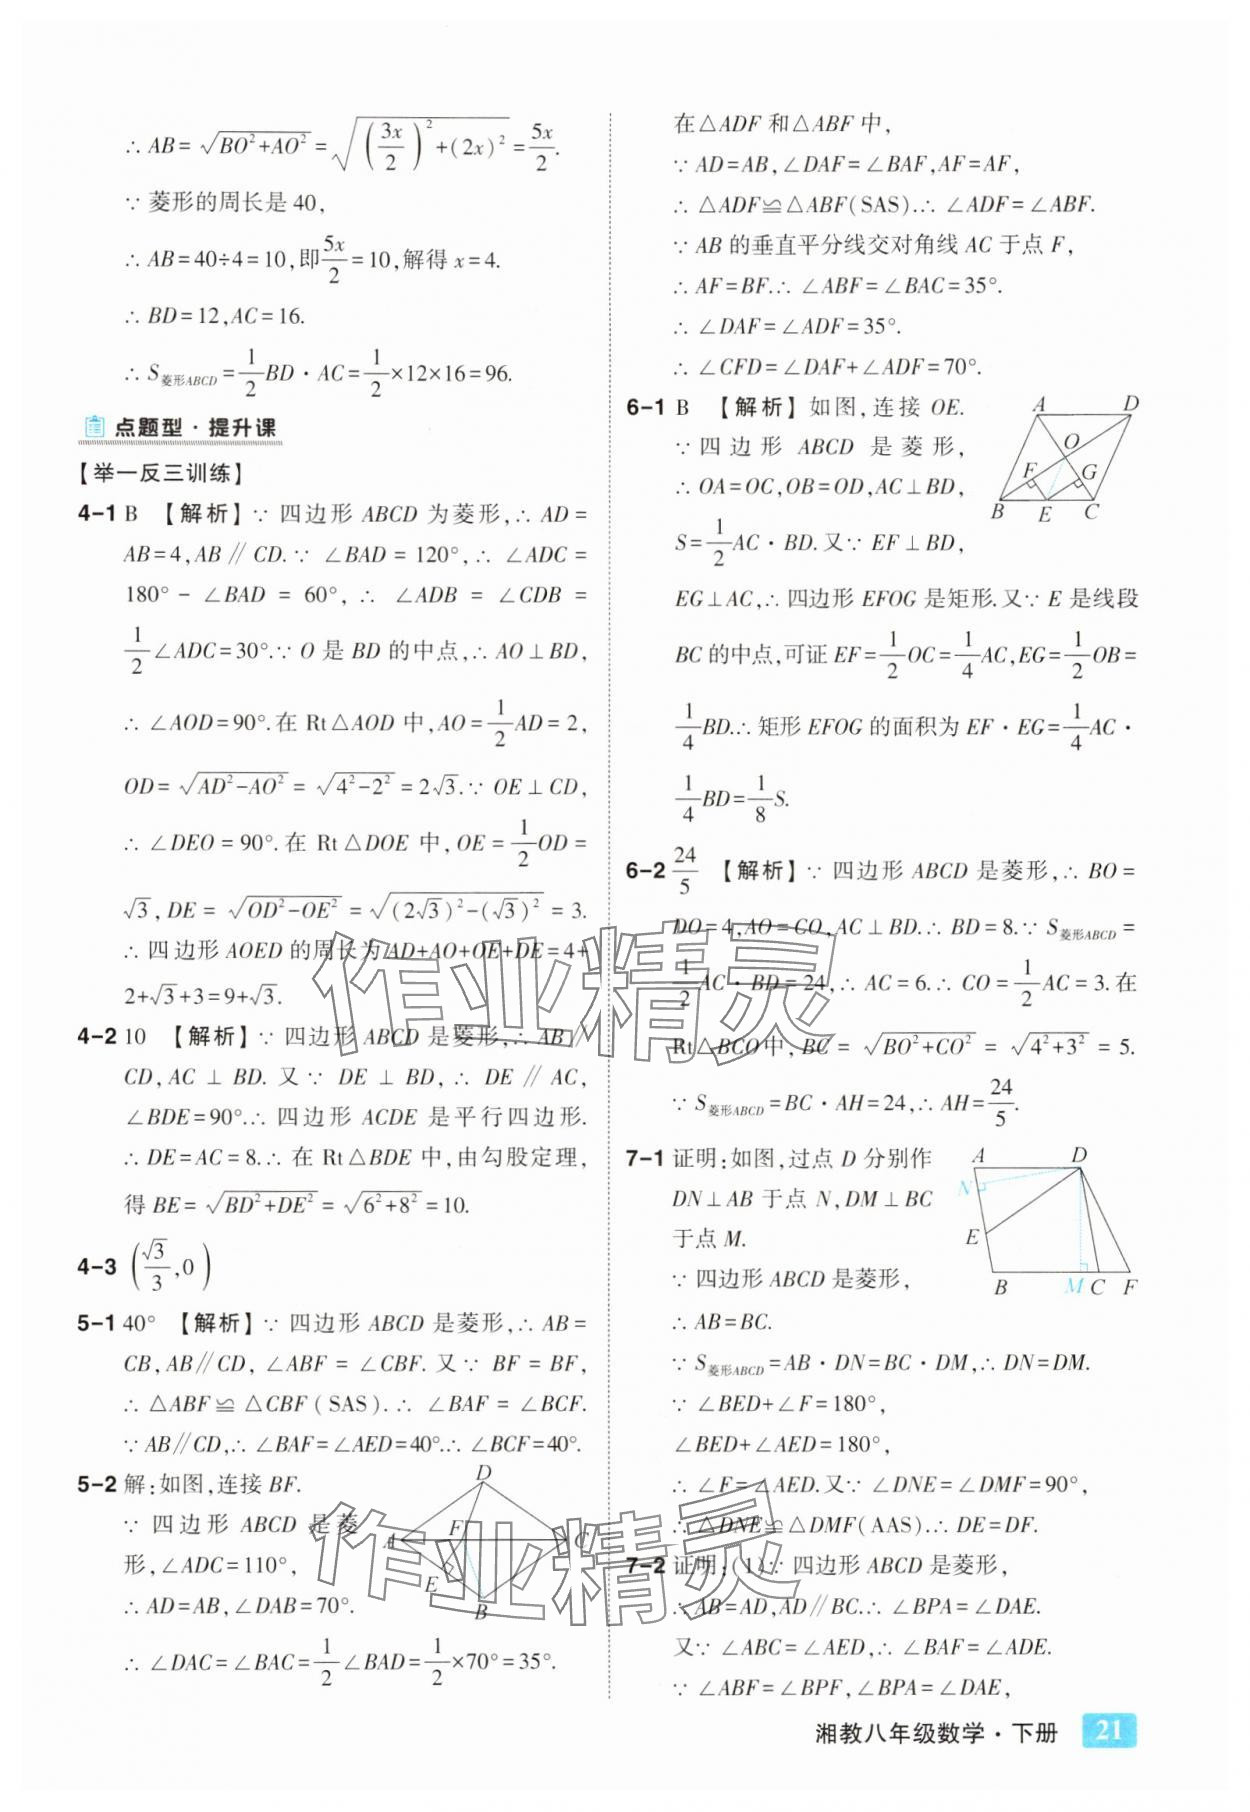 ∴ AB=√(BO²+AO²)=√((3x/2)²+(2x)²)=5x/2.
∵ 菱形的周长是 40,
∴ AB=40÷4=10,即5x/2=10,解得 x=4.
∴ BD=12,AC=16.
∴ S菱形ABCD=1/2BD·AC=1/2×12×16=96.
点题型·提升课
【举一反三训练】
4-1 B 【解析】∵ 四边形 ABCD 为菱形,∴ AD=
AB=4,AB∥CD.∵ ∠BAD=120°,∴ ∠ADC=
180°-∠BAD=60°,∴ ∠ADB=∠CDB=
1/2∠ADC=30°.∵ O 是 BD 的中点,∴ AO⊥BD,
∴ ∠AOD=90°.在 Rt△AOD 中,AO=1/2AD=2,
OD=√(AD²-AO²)=√(4²-2²)=2√3.∵ OE⊥CD,
∴ ∠DEO=90°.在 Rt△DOE 中,OE=1/2OD=
√3,DE=√(OD²-OE²)=√((2√3)²-(√3)²)=3.
∴ 四边形 AOED 的周长为AD+AO+OE+DE=4+
2+√3+3=9+√3.
4-2 10 【解析】∵ 四边形 ABCD 是菱形,∴ AB∥
CD,AC⊥BD.又∵ DE⊥BD,∴ DE∥AC,
∠BDE=90°.∴ 四边形 ACDE 是平行四边形.
∴ DE=AC=8.∴ 在 Rt△BDE 中,由勾股定理,
得 BE=√(BD²+DE²)=√(6²+8²)=10.
4-3 (√3/3,0)
5-1 40° 【解析】∵ 四边形 ABCD 是菱形,∴ AB=
CB,AB∥CD,∠ABF=∠CBF.又∵ BF=BF,
∴ △ABF≌△CBF(SAS).∴ ∠BAF=∠BCF.
∵ AB∥CD,∴ ∠BAF=∠AED=40°.∴ ∠BCF=40°.
5-2 解:如图,连接 BF.
∵ 四边形 ABCD 是菱
形,∠ADC=110°,
∴ AD=AB,∠DAB=70°.
∴ ∠DAC=∠BAC=1/2∠BAD=1/2×70°=35°.
D
A
F
C
E
B
在△ADF 和△ABF 中,
∵ AD=AB,∠DAF=∠BAF,AF=AF,
∴ △ADF≌△ABF(SAS).∴ ∠ADF=∠ABF.
∵ AB 的垂直平分线交对角线 AC 于点 F,
∴ AF=BF.∴ ∠ABF=∠BAC=35°.
∴ ∠DAF=∠ADF=35°.
∴ ∠CFD=∠DAF+∠ADF=70°.
6-1 B 【解析】如图,连接 OE.
∵ 四边形 ABCD 是菱形,
∴ OA=OC,OB=OD,AC⊥BD,
S=1/2AC·BD.又∵ EF⊥BD,
EG⊥AC,∴ 四边形 EFOG 是矩形.又∵ E 是线段
BC 的中点,可证 EF=1/2OC=1/4AC,EG=1/2OB=
1/4BD.∴ 矩形 EFOG 的面积为 EF·EG=1/4AC·
1/4BD=1/8S.
A
D
O
F
G
B
E
C
6-2 24/5 【解析】∵ 四边形 ABCD 是菱形,∴ BO=
DO=4,AO=CO,AC⊥BD.∴ BD=8.∵ S菱形ABCD=
1/2AC·BD=24,∴ AC=6.∴ CO=1/2AC=3.在
Rt△BCO中,BC=√(BO²+CO²)=√(4²+3²)=5.
∵ S菱形ABCD=BC·AH=24,∴ AH=24/5.
7-1 证明:如图,过点 D 分别作
DN⊥AB 于点 N,DM⊥BC
于点 M.
∵ 四边形 ABCD 是菱形,
∴ AB=BC.
∵ S菱形ABCD=AB·DN=BC·DM,∴ DN=DM.
∵ ∠BED+∠F=180°,
∠BED+∠AED=180°,
∴ ∠F=∠AED.又∵ ∠DNE=∠DMF=90°,
∴ △DNE≌△DMF(AAS).∴ DE=DF.
A
D
N
E
B
M
C
F
7-2 证明:(1)∵ 四边形 ABCD 是菱形,
∴ AB=AD,AD∥BC.∴ ∠BPA=∠DAE.
又∵ ∠ABC=∠AED,∴ ∠BAF=∠ADE.
∵ ∠ABF=∠BPF,∠BPA=∠DAE,
作业精灵
作业精灵
湘教八年级数学·下册 21